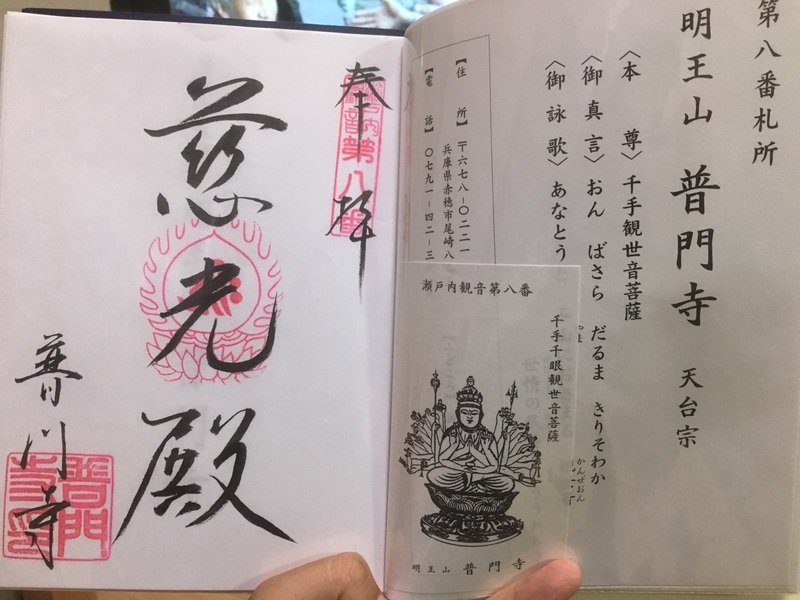 第八番札所
明王山 普門寺 天台宗
〈本 尊〉千手観世音菩薩
〈御真言〉おん ばさら だるま きりそわか
〈御詠歌〉あなとう
かんぜおん
【住 所】〒六七八-〇二二一
兵庫県赤穂市尾崎八
【電 話】〇七九一-四二-三
瀬戸内観音第八番
千手千眼観世音菩薩
明王山 普門寺
奉拝
第八番
慈光殿
普門寺
普門